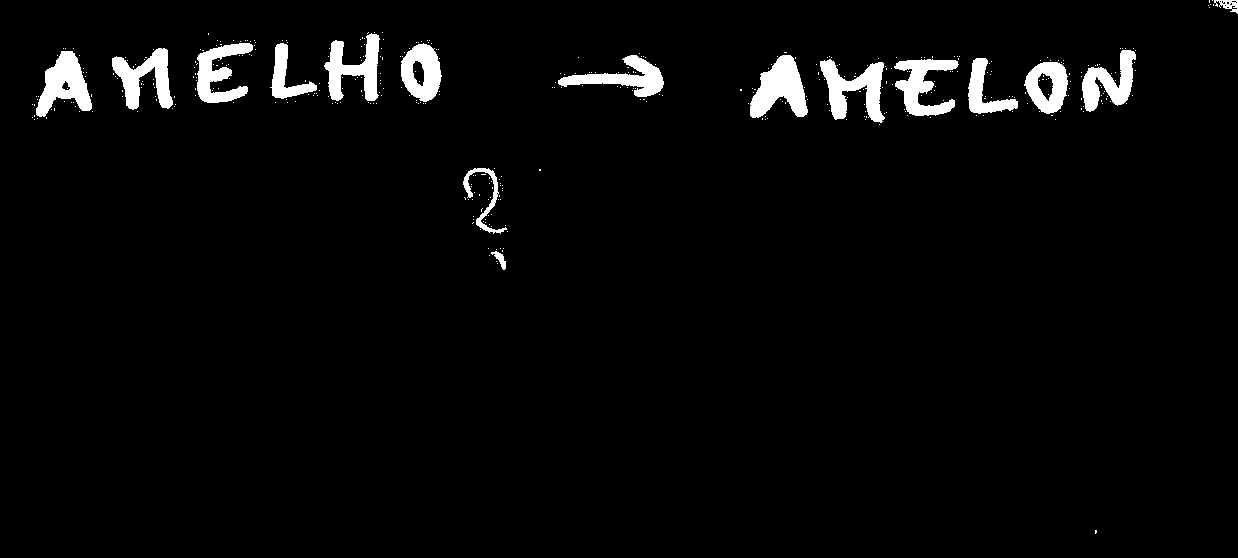 AMELHO → AMELON
?